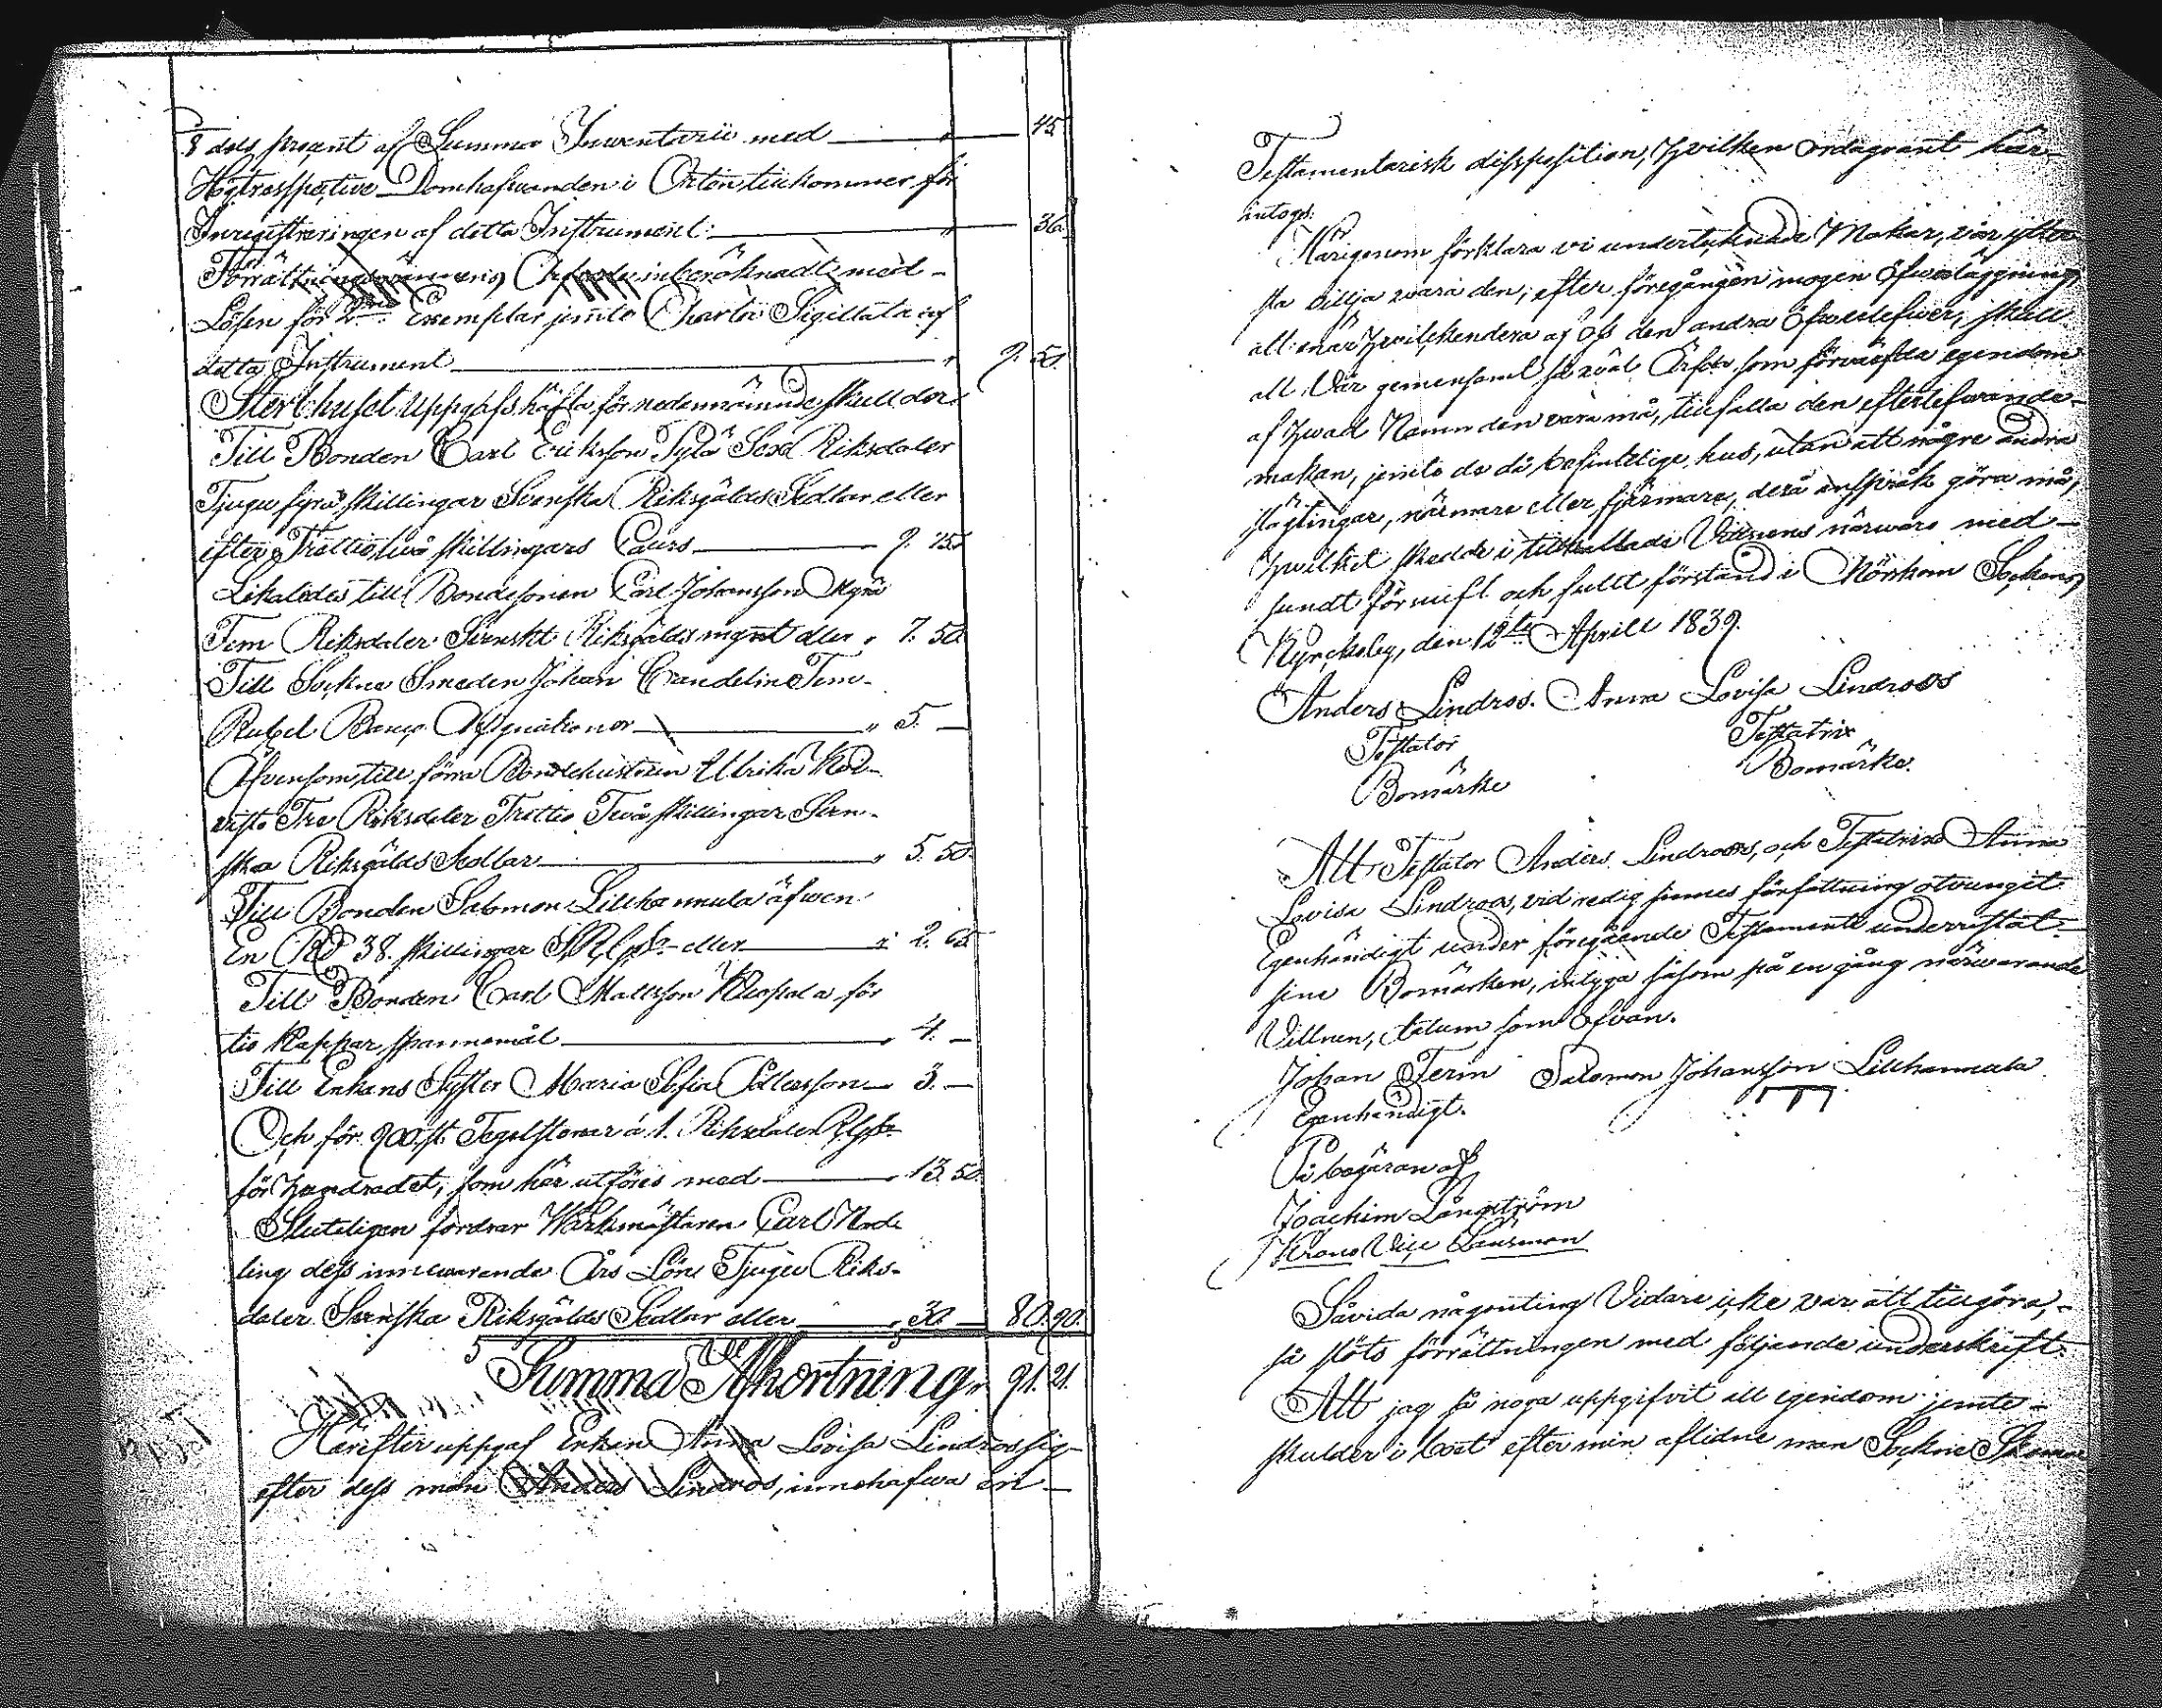 8 dels procent af Summa Inventarii med — 45.
Högtrespective Domhafvanden i Orten tillkommer för
Inregistreringen af detta Instrument: — 36.
Lösen för 2ne Exemplar jemte Charta Sigillata af
detta Instrument — 9. 50.
Sterbhuset uppgafs häfta för nedannämnde skulder:
Till Bonden Carl Eriksson Sylä Sex Riksdaler
Tjugu fyra skillingar Svenska Riksgälds Sedlar eller
efter Trettio två skillingars Cours — 9. 75.
Likaledes till Bondesonen Carl Johansson Myra
Fem Riksdaler Svenskt Riksgälds mynt eller „ 7. 50.
Till Sockne Smeden Johan Crandelin Fem
Rubel Banco Assignationer — „ 5. —
Äfvensom till förra Bondehustrun Ulrika
Tre Riksdaler Trettio Två skillingar Sven-
ska Riksgälds Sedlar — „ 5. 50.
Till Bonden Salomon Lillkannula äfwen
En RD 38. skillingar eller — „ 2. 65
Till Bonden Carl Mattsson Klospala för
tio Kappar spannemål — „ 4. —
Till Enkans Syster Maria Sofia — 3. —
Och för 900 st. Tegelstenar á 1. Riksdaler Rgs
för hundradet, som här utföres med — „ 13. 50.
Sluteligen fordrar Werkmästaren Carl Nord-
ling dess innewarande Års Lön Tjugu Riks-
daler Svenska Riksgälds Sedlar eller — „ 30. — 80. 90.
Summa Afkortning „ 91. 21.
Härefter uppgaf Enkan Anna Lovisa Lindroos sig
efter dess man Anders Lindros, innehafwa en
Testamentarisk disposition, hvilken ordagrant här
intogs:
Härigenom förklara vi undertecknade Makar, vår ytter-
sta villja vara den, efter föregången mogen öfwerläggning,
att när hvilkendera af oss den andra öfwerlefwer, skall
all vår gemensamt så väl ärfda som förwärfda egendom
af hvad Namn den vara må, tillfalla den efterlefwande
makan, jemte de då befintelige hus, utan att några andra
slägtingar, närmare eller fjermare, derå anspråk göra må,
hvilket skedde i tillkallade Vittnens närwaro med
sundt förnuft och fullt förstånd i Mörskom Sockens
Kyrckoby, den 12te Aprill 1839.
Anders Lindros. Anna Lovisa Lindroos
Testator Testatrix
Bomärke Bomärke.
Att Testator Anders Lindroos, och Testatrix Anna
Lovisa Lindroos, vid redig sinnes författning otvunget
Egenhändigt under föregående Testamente underristat
sine Bomärken, intyga såsom på en gång närwarande
Vittnen, datum som ofvan.
Johan Ferin Salomon Johansson Lillkannula
Egenhändigt.
På begäran af
Joachim Långström
Krono Vice Länsman
Såvida någonting vidare icke var att tillgöra,
så slöts förrättningen med följande underskrift:
Att jag så noga uppgifvit all egendom jemte
skulder i boet efter min aflidne man Sockne